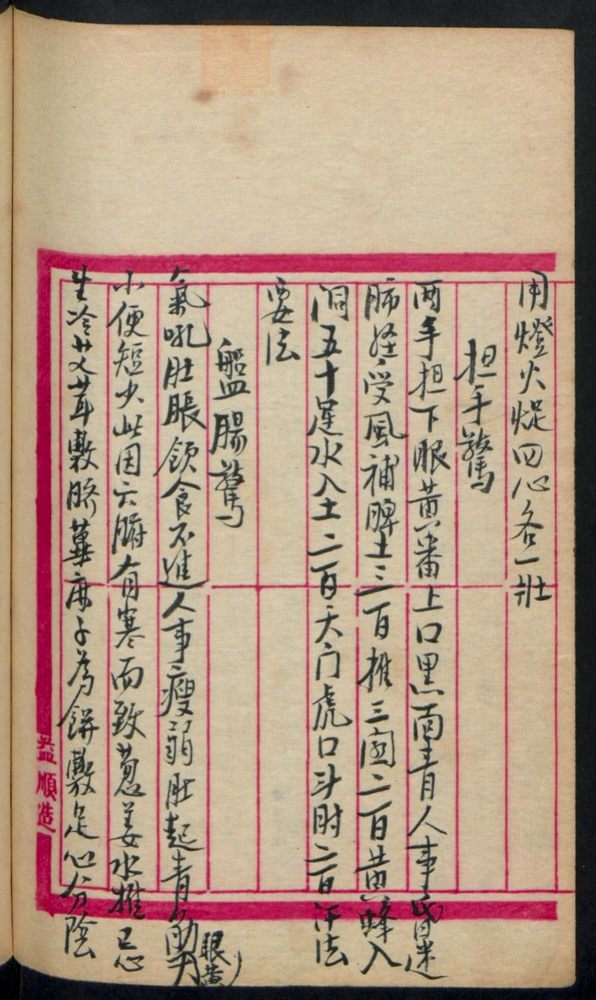 用燈火煋四心各一壯
担手驚
两手担下眼黄番上口黑面青人事昏迷
肺经受風補脾土三百推三関二百黄蜂入
洞五十運水入土二百天门虎口斗肘二百汗法
要法
盤腸驚
氣吼肚脹飲食不進人事瘦弱肚起青筋眼黄
小便短少此因六腑有寒而致葱姜水推忌
生冷艾茸敷臍萆麻子為餅敷足心分陰
益順造